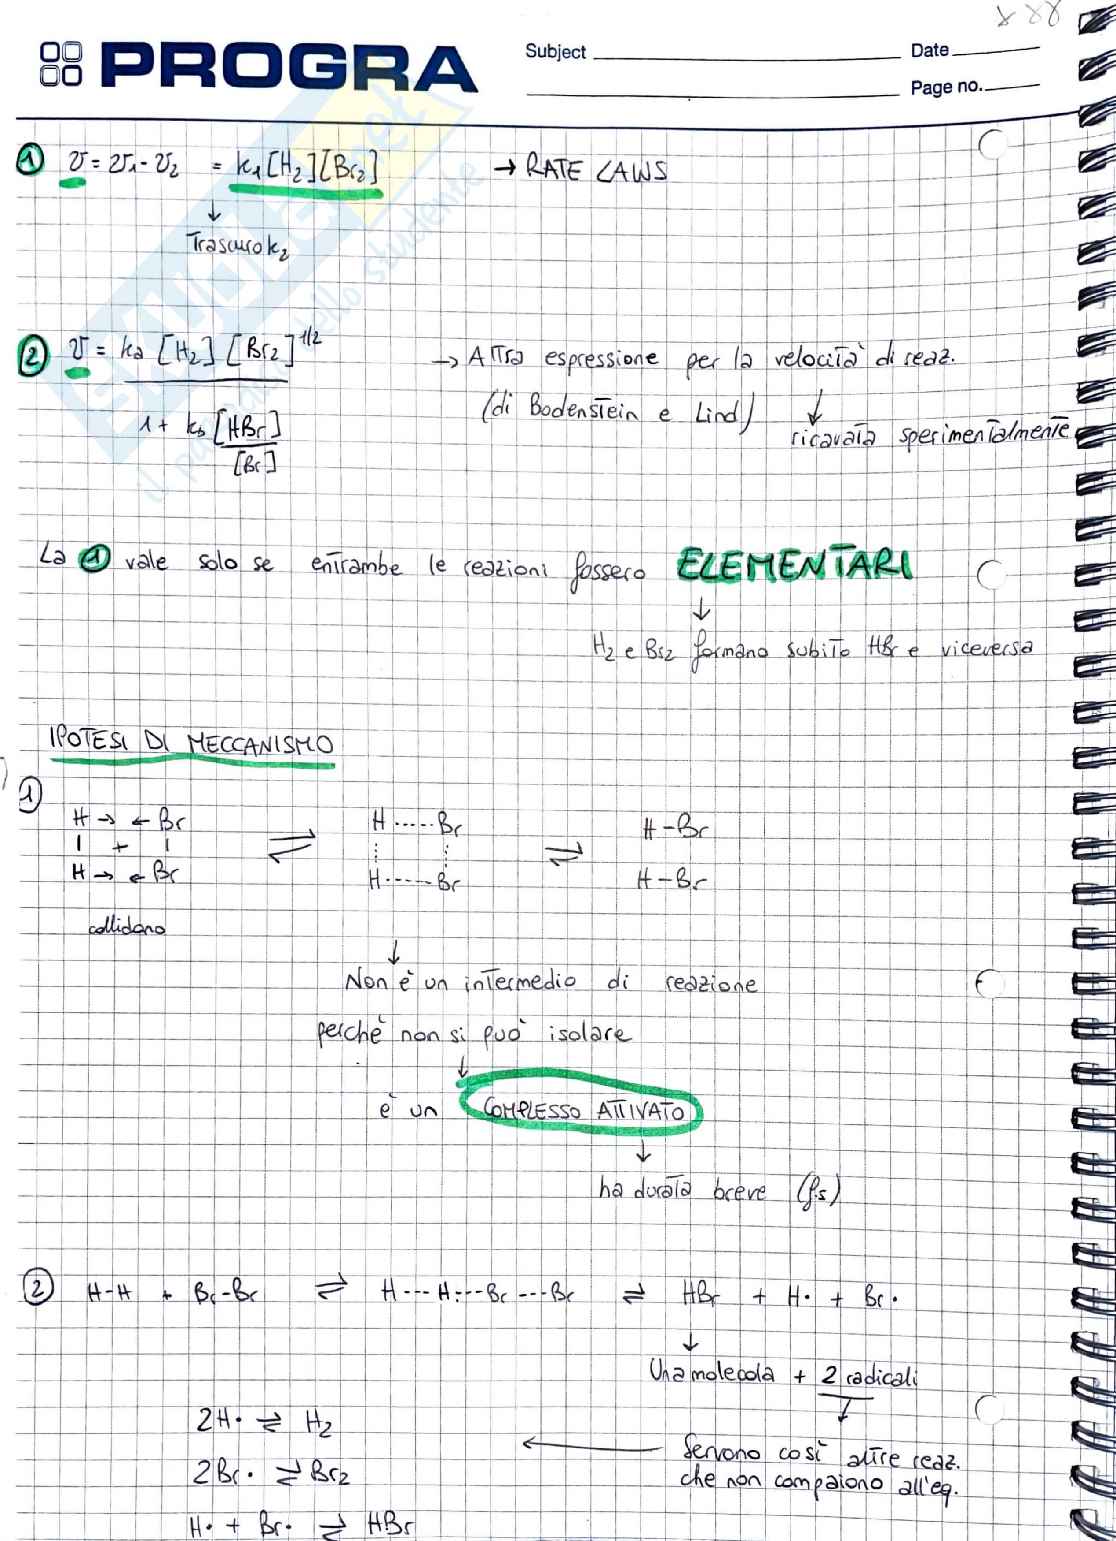 PROGRA
Subject
Date
Page no.
① v = v₁ - v₂ = k₁[H₂][Br₂] → RATE LAWS
↓
Trascuro k₂
② v = ka [H₂] [Br₂]^1/2 → Altra espressione per la velocità di reaz.
1 + kb [HBr] (di Bodenstein e Lind) ↓
[Br] ricavata sperimentalmente
La ① vale solo se entrambe le reazioni fossero ELEMENTARI
↓
H₂ e Br₂ formano subito HBr e viceversa
IPOTESI DI MECCANISMO
①
H → ← Br ⇌ H ····· Br ⇌ H - Br
| + |
H → ← Br H ····· Br H - Br
collidono
↓
Non è un intermedio di reazione
perchè non si può isolare
↓
è un COMPLESSO ATTIVATO
↓
ha durata breve (fs)
② H-H + Br-Br ⇌ H --- H --- Br --- Br ⇌ HBr + H· + Br·
↓
Una molecola + 2 radicali
↓
2H· ⇌ H₂ ← Servono così altre reaz.
2Br· ⇌ Br₂ che non compaiono all'eq.
H· + Br· ⇌ HBr